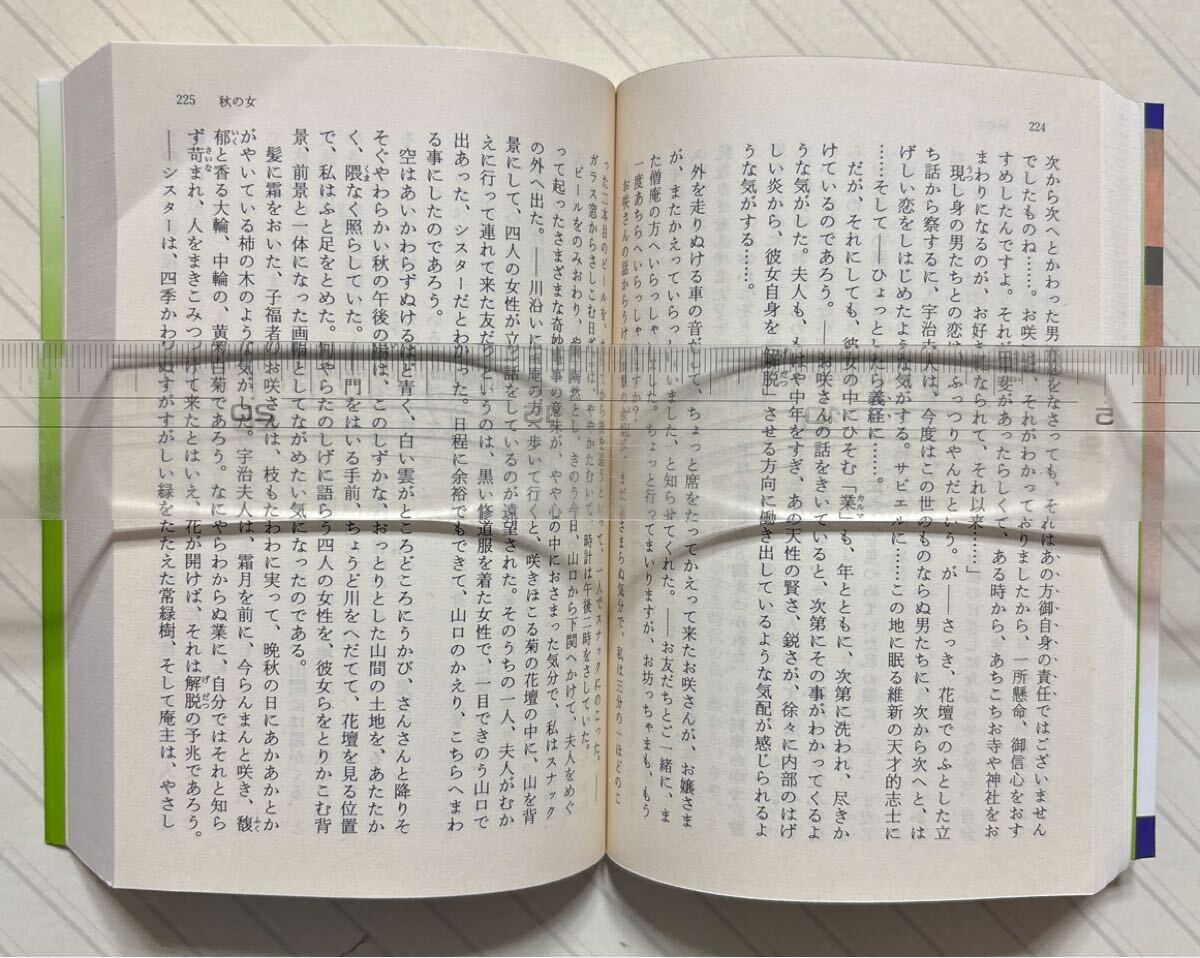 224
次から次へとかわった男恋をなさっても、それはあの方御自身の責任ではございません
でしたものね……。お咲には、それがわかっておりましたから、一所懸命、御信心をおす
すめしたんですよ。それが甲斐があったらしくて、ある時から、あちこちお寺や神社をお
まわりになるのが、お好きになられて、それ以来……」
現し身の男たちとの恋は、ふっつりやんだという。が――さっき、花壇でのふとした立
ち話から察するに、宇治夫人は、今度はこの世のものならぬ男たちに、次から次へと、は
げしい恋をしはじめたような気がする。サビエルに……この地に眠る維新の天才的志士に
……そして――ひょっとしたら義経に……。
だが、それにしても、彼女の中にひそむ「業」も、年とともに、次第に洗われ、尽きか
けているのであろう。――お咲さんの話をきいていると、次第にその事がわかってくるよ
うな気がした。夫人も、もはや中年をすぎ、あの天性の賢さ、鋭さが、徐々に内部のはげ
しい炎から、彼女自身を「解脱」させる方向に働き出しているような気配が感じられるよ
うな気がする……。
外を走りぬける車の音がして、ちょっと席をたってかえって来たお咲さんが、お嬢さま
が、またかえっていらっしゃいました、と知らせてくれた。――お友だちとご一緒に、ま
た僧庵の方へいらっしゃいました。ちょっと行ってまいりますが、お坊っちゃまも、もう
一度あちらへいらっしゃいますか?
お咲さんの話からうけた まだおさまらぬ気分で、私は三分の一ほどのこ
225 秋の女
った二本目のビールを、 といって、一人でスナックにのこった。――
ガラス窓からさしこむ日ざしは、ややかたむいて、時計は午後二時をさしていた。
ビールをのみおわり、やや陶然とし、きのう今日、山口から下関へかけて、夫人をめぐ
って起ったさまざまな奇妙な事の意味が、やや心の中におさまった気分で、私はスナック
の外へ出た。――川沿いに 庵の方へ歩いて行くと、咲きほこる菊の花壇の中に、山を背
景にして、四人の女性が立ち話をしているのが遠望された。そのうちの一人、夫人がむか
えに行って連れて来た友だちというのは、黒い修道服を着た女性で、一目できのう山口で
出あった、シスターだとわかった。日程に余裕でもできて、山口のかえり、こちらへまわ
る事にしたのであろう。
空はあいかわらずぬけるほど青く、白い雲がところどころにうかび、さんさんと降りそ
そぐやわらかい秋の午後の陽は、このしずかな、おっとりとした山間の土地を、あたたか
く、隈なく照らしていた。――門をはいる手前、ちょうど川をへだてて、花壇を見る位置
で、私はふと足をとめた。何やらたのしげに語らう四人の女性を、彼女らをとりかこむ背
景、前景と一体になった画面としてながめたい気になったのである。
髪に霜をおいた、子福者のお咲さんは、枝もたわわに実って、晩秋の日にあかあかとか
がやいている柿の木のような気がした。宇治夫人は、霜月を前に、今らんまんと咲き、馥
郁と香る大輪、中輪の、黄菊白菊であろう。なにやらわからぬ業に、自分ではそれと知ら
ず苛まれ、人をまきこみつづけて来たとはいえ、花が開けば、それは解脱の予兆であろう。
――シスターは、四季かわらぬすがすがしい緑をたたえた常緑樹、そして庵主は、やさし